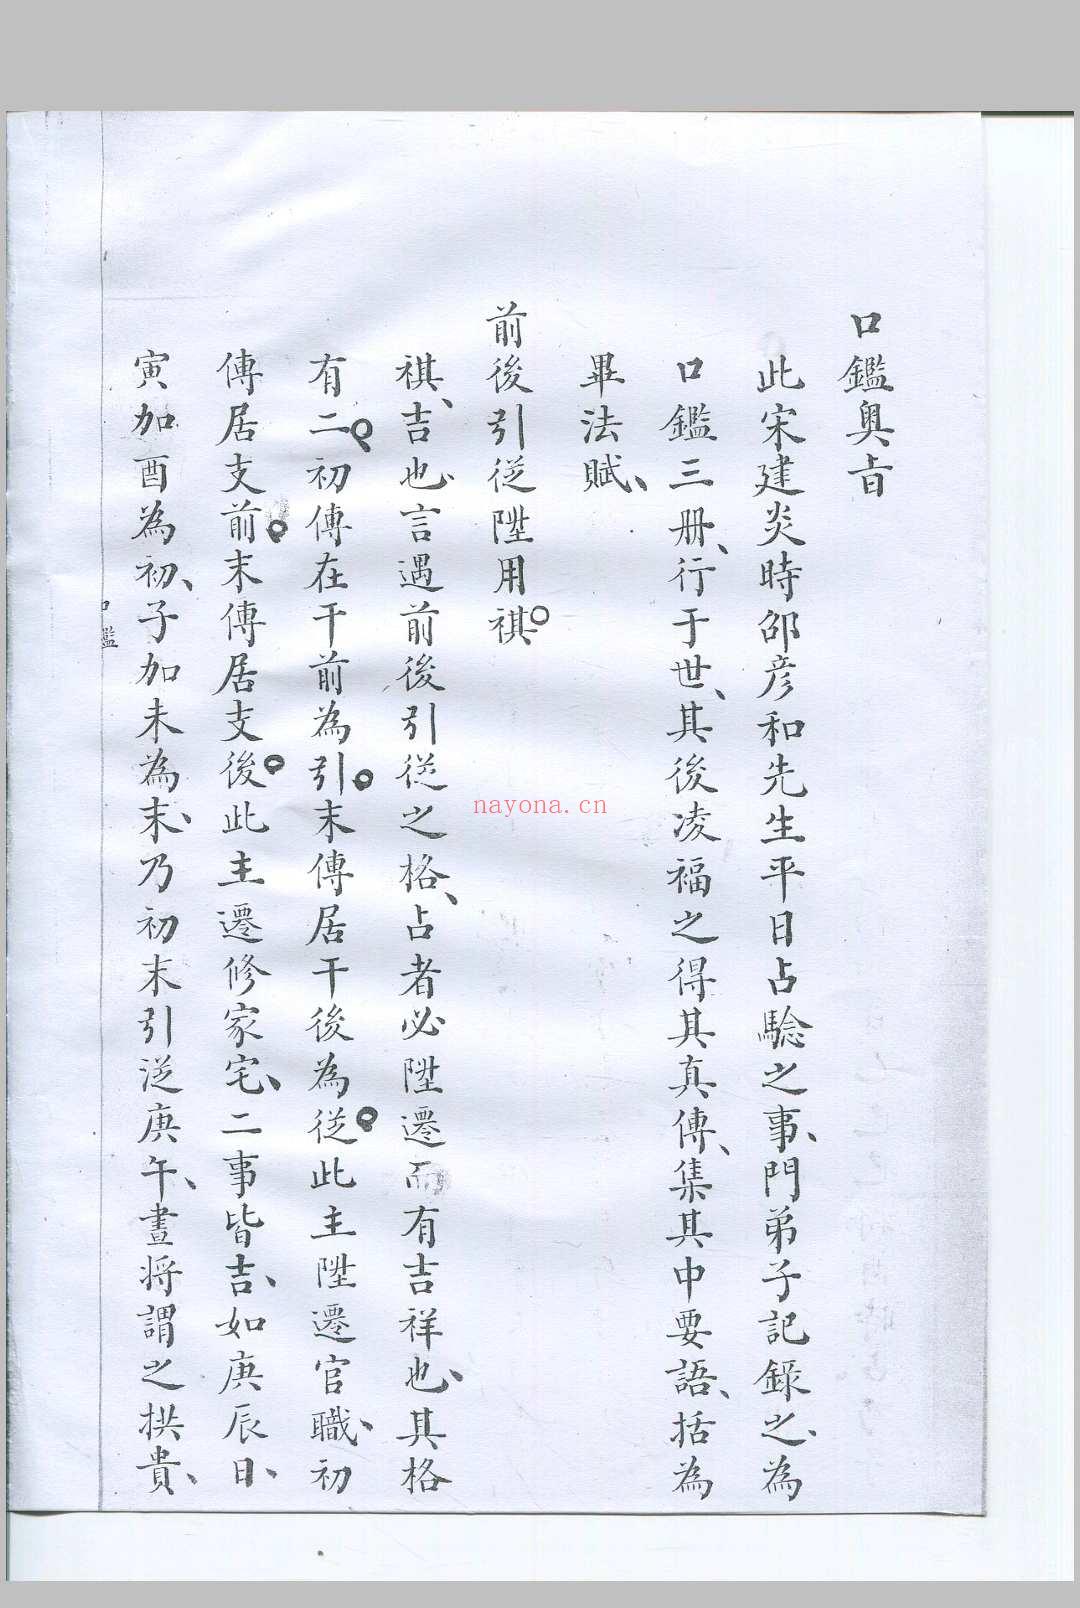 口鑑奥旨
此宋建炎時邵彦和先生平日占騐之事、門弟子記録之、為
口鑑三册、行于世、其後凌福之得其真傳、集其中要語、括為
畢法賦、
前後引從陞用祺。
祺、吉也、言遇前後引從之格、占者必陞遷而有吉祥也、其格
有二。初傳在干前為引。末傳居干後為從。此主陞遷官職、初
傳居支前。末傳居支後。此主遷修家宅、二事皆吉、如庚辰日、
寅加酉為初、子加未為末、乃初末引從庚午、晝將謂之拱貴、
口鑑
nayona.cn